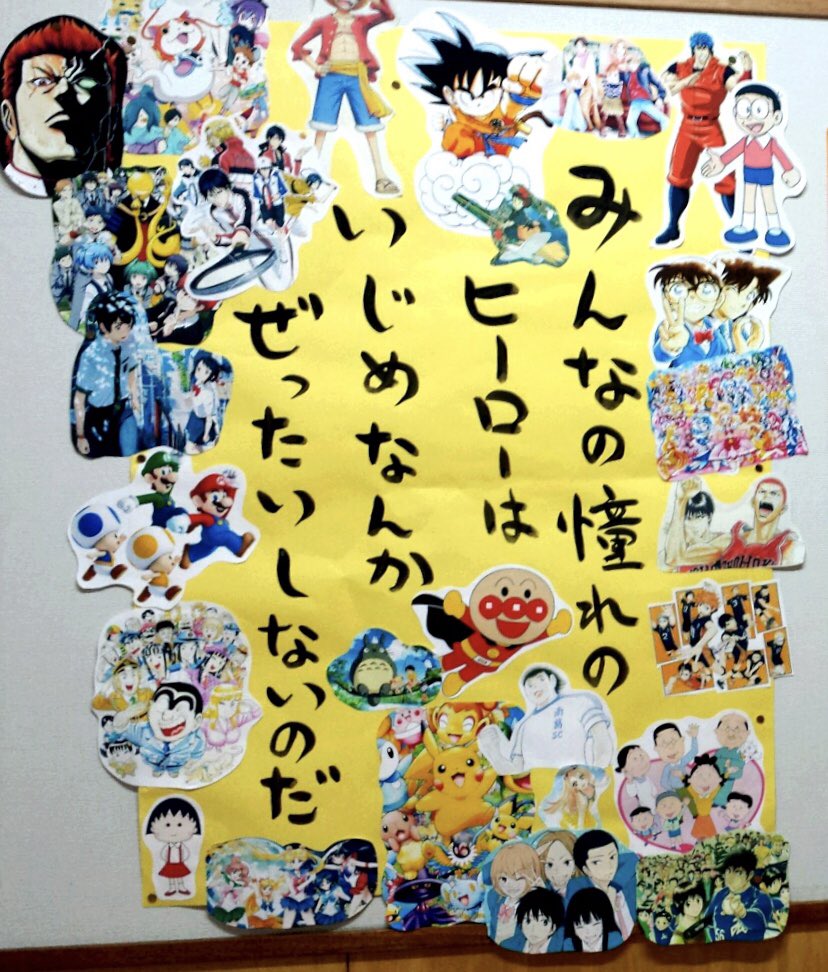 みんなの憧れの
ヒーローは
いじめなんか
ぜったいしないのだ
南葛
SC